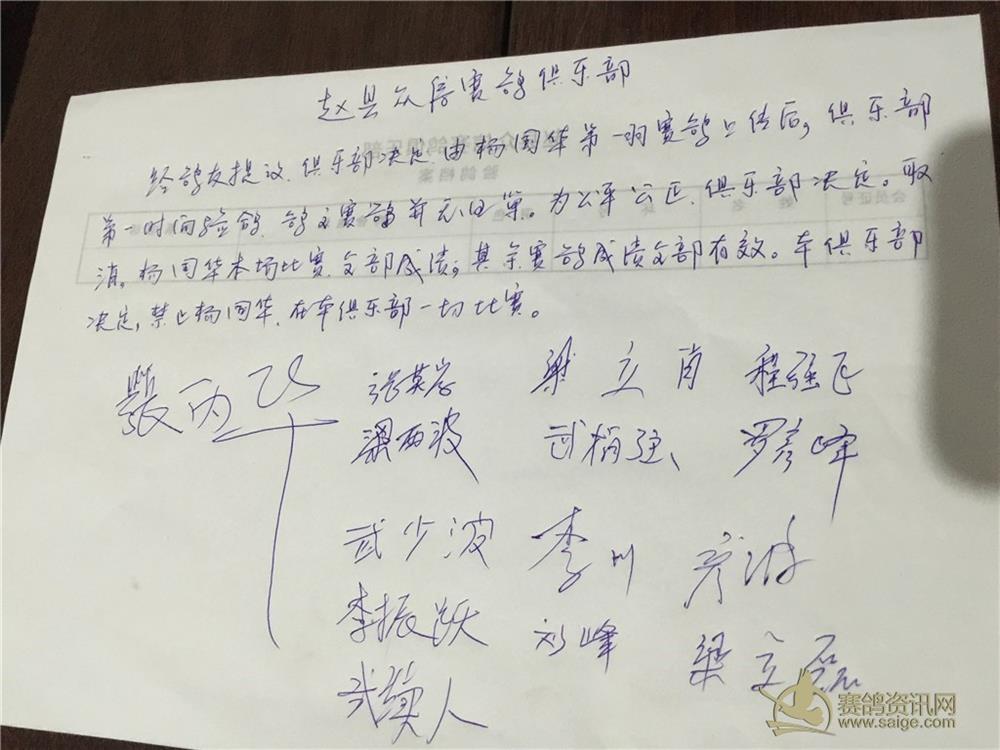 赵县众信赛鸽俱乐部
经鸽友提议.俱乐部决定.由杨国华第一羽赛鸽上传后,俱乐部
第一时间验鸽.鸽主赛鸽并无归巢。为公平公正.俱乐部决定。取
消.杨国华本场比赛全部成绩;其余赛鸽成绩全部有效。本俱乐部
决定,禁止杨国华.在本俱乐部一切比赛。
张英岩 梁立肖 程强正
梁西波 武梢强、罗彦峰
武少波 李川 彦游
李振跃 刘峰 梁立磊
验鸽档案
会员证号
赛鸽资讯网
www.saige.com